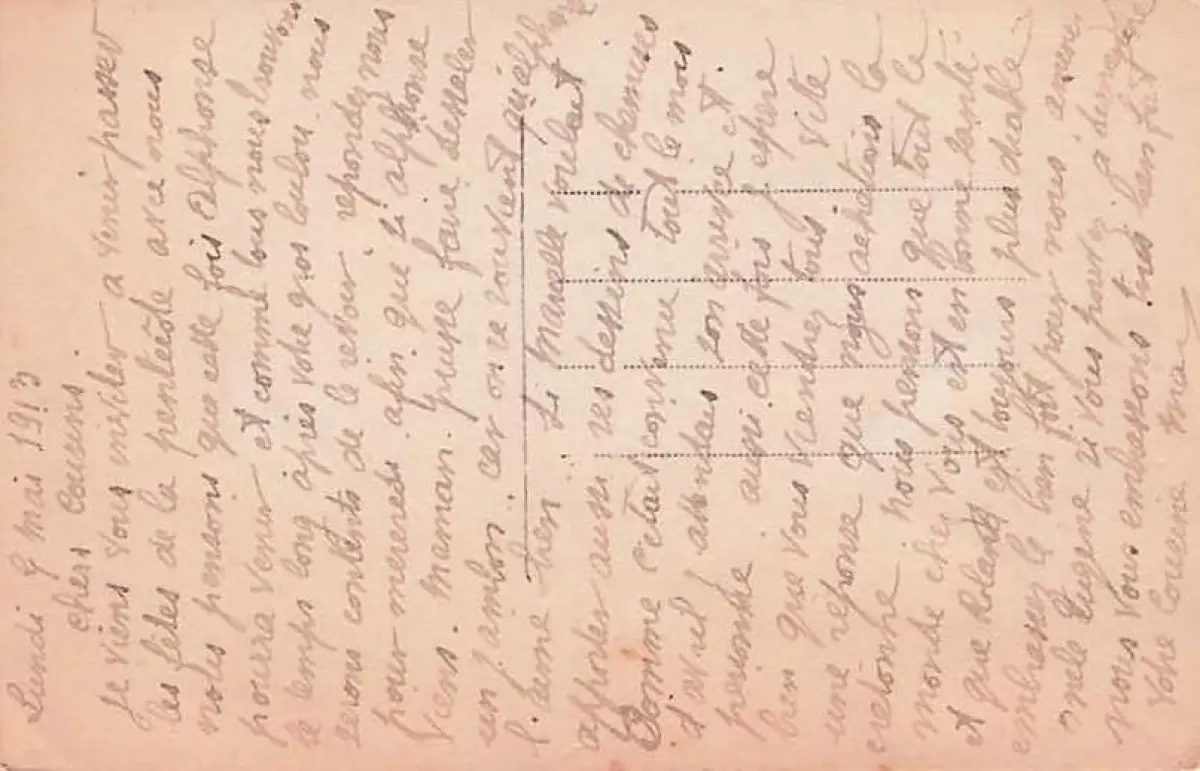 Lundi 9 mai 1913
chers Cousins
Je viens vous insister a venir passer
les fêtes de la pentecôte avec nous
notes pensions que cette fois Alphonse
pourra venir et comme tous nous
le temps long après votre gros loulou nous
serons contents de le revoir repondez nous
pour mercredi afin que si alphonse
viens. maman puisse faire dessaler
un jambon. car on se souvient qu'alphonse
l'aime bien Si Marcelle voulait
apporter aussi ses dessins de chemises
Comme c'était convenu tout le mois
d'avril attendais son arrivée et
personne aussi cette fois j'espère
bien que vous viendrez tous vite
une réponse que nous achetions la
cretonne nous pensons que tout le
monde chez vous est en bonne santé
et que Roland est toujours plus diable
embrassez le bien fort pour nous
oncle Eugène si vous pouvez
nous vous embrassons tres bien fort
Votre Cousine